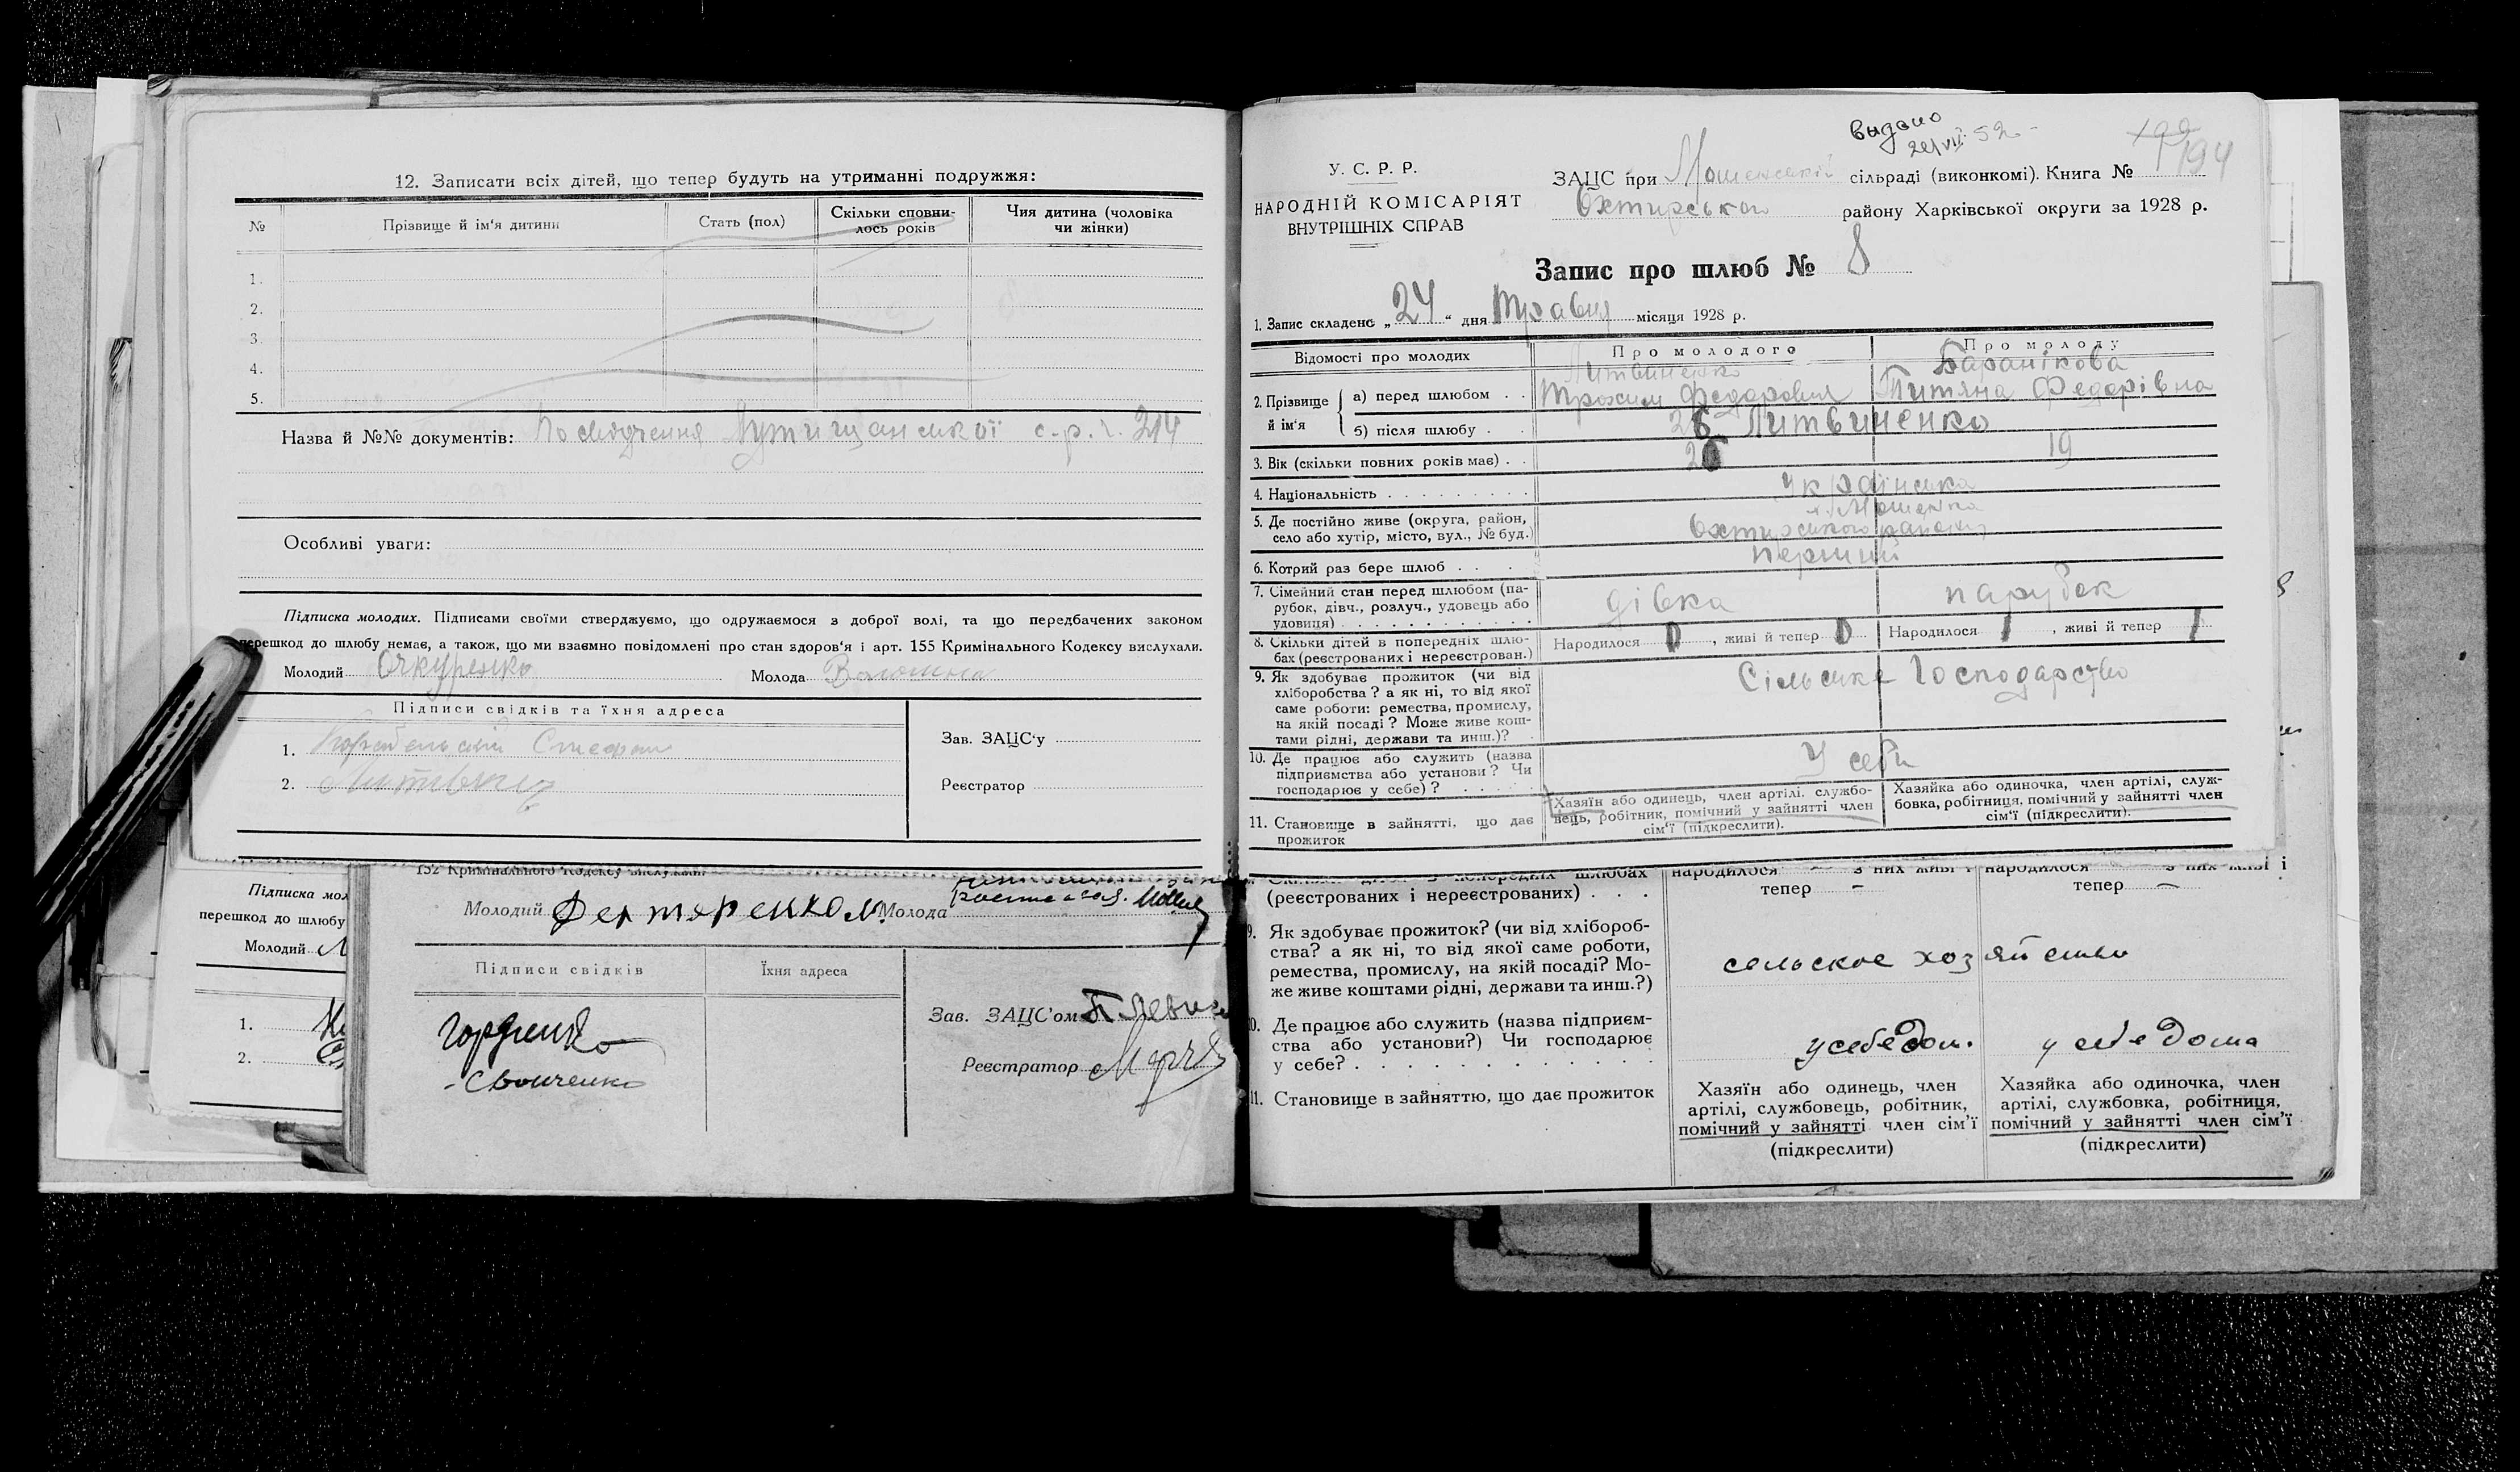 12. Записати всіх дітей, що тепер будуть на утриманні подружжя:
№ Прізвище й ім'я дитини Стать (пол) Скільки сповнилось років Чия дитина (чоловіка чи жінки)
1.
2.
3.
4.
5.
Назва й №№ документів: с.р. 214
Особливі уваги:
Підписка молодих. Підписами своїми стверджуємо, що одружаємося з доброї волі, та що передбачених законом
перешкод до шлюбу немає, а також, що ми взаємно повідомлені про стан здоров'я і арт. 155 Кримінального Кодексу вислухали.
Молодий Очкуренко Молода Волошина
Підписи свідків та їхня адреса
1. Степан
2.
Зав. ЗАЦС'у
Реєстратор
Підписка мол
перешкод до шлюбу
Молодий
1.
2.
152 Кримінального Кодексу вислухали.
Молодий Молода
Підписи свідків Їхня адреса
Гордієнко
Зав. ЗАЦС'ом
Реєстратор
видано
VII 52
194
У. С. Р. Р.
НАРОДНІЙ КОМІСАРІЯТ
ВНУТРІШНІХ СПРАВ
ЗАЦС при Мошенській сільраді (виконкомі). Книга №
Охтирського району Харківської округи за 1928 р.
Запис про шлюб № 8
1. Запис складено „24“ дня Травня місяця 1928 р.
Відомості про молодих Про молодого Про молоду
2. Прізвище й ім'я
а) перед шлюбом . . Литвиненко Трохим Федорович Баранікова Титяна Федорівна
б) після шлюбу . . Литвиненко
3. Вік (скільки повних років має) . . 19
4. Національність . . . . . . . . . Українська
5. Де постійно живе (округа, район,
село або хутір, місто, вул., № буд.) х. Мошенка
Охтирського району
6. Котрий раз бере шлюб . . . перший
7. Сімейний стан перед шлюбом (парубок, дівч., розлуч., удовець або
удовиця) . . . . . . . . . . . дівка парубок
8. Скільки дітей в попередніх шлюбах (реєстрованих і нереєстрован.) Народилося 0, живі й тепер 0 Народилося, живі й тепер
9. Як здобуває прожиток (чи від
хліборобства? а як ні, то від якої
саме роботи: ремества, промислу,
на якій посаді? Може живе коштами рідні, держави та инш.)? Сільське Господарство
10. Де працює або служить (назва
підприємства або установи? Чи
господарює у себе)? . . . . . У себи
11. Становище в зайнятті, що дає
прожиток
Хазяїн або одинець, член артілі, службовець, робітник, помічний у зайнятті член
сім'ї (підкреслити).
Хазяйка або одиночка, член артілі, службовка, робітниця, помічний у зайнятті член
сім'ї (підкреслити).
(реєстрованих і нереєстрованих) . . .
народилося — з них живі й
тепер —
народилося — з них живі і
тепер —
9. Як здобуває прожиток? (чи від хліборобства? а як ні, то від якої саме роботи,
ремества, промислу, на якій посаді? Може живе коштами рідні, держави та инш.?)
сельское хозяйство
10. Де працює або служить (назва підприємства або установи?) Чи господарює
у себе? . . . . . . . . . . .
у себе дом. у себе дома
11. Становище в зайняттю, що дає прожиток
Хазяїн або одинець, член
артілі, службовець, робітник,
помічний у зайнятті член сім'ї
(підкреслити)
Хазяйка або одиночка, член
артілі, службовка, робітниця,
помічний у зайнятті член сім'ї
(підкреслити)